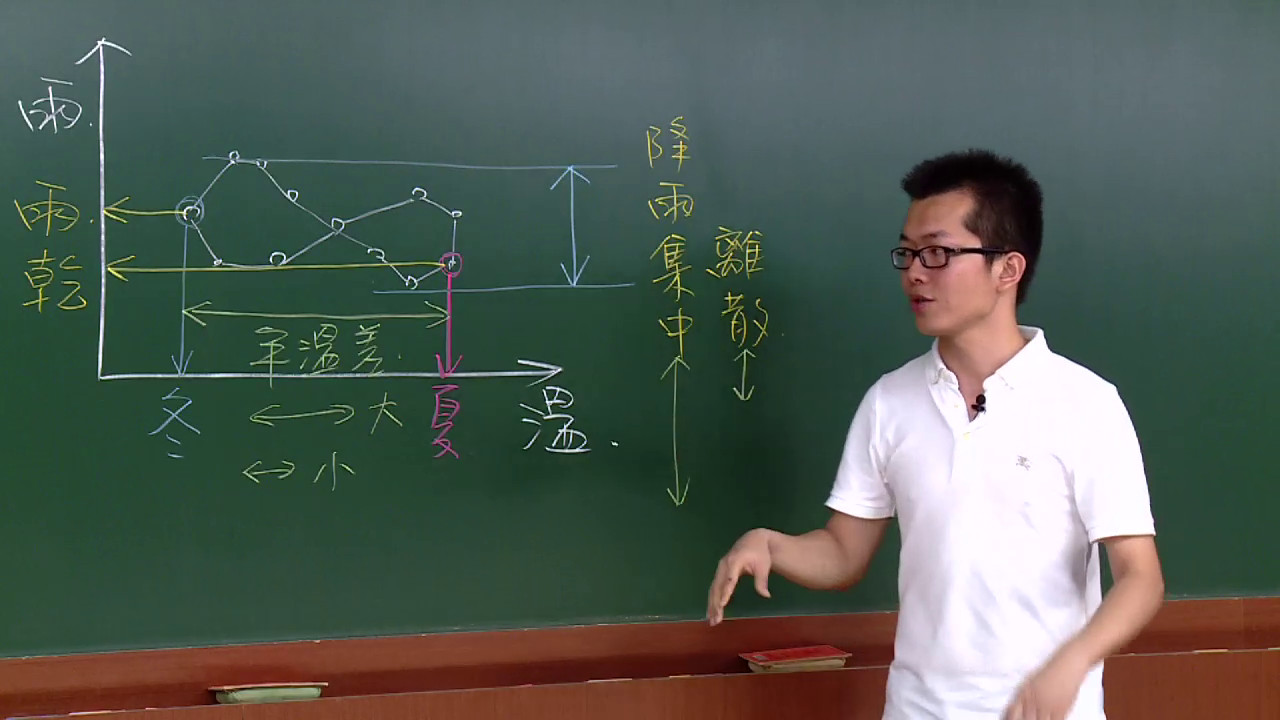 雨.
雨.
乾
年溫差.
冬
大
小
夏
溫.
降雨集中
離散.